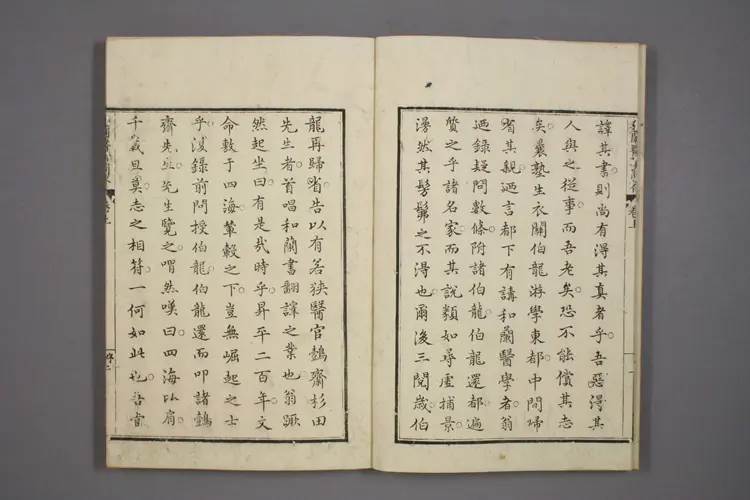 譯其書則尚有得其真者乎吾惡得其
人與之從事而吾老矣恐不能償其志
矣曩塾生衣關伯龍游學東都中間歸
省其親迺言都下有講和蘭醫學者翁
迺錄疑問數條附諸伯龍伯龍還都遍
質之乎諸名家而其說類如尋虛捕景
漫然其髣髴之不得也爾後三閱歲伯
龍再歸省告以有若狹醫官鷧齋杉田
先生者首唱和蘭書翻譯之業也翁蹶
然起坐曰有是哉時乎昇平二百年文
命敷于四海輦轂之下豈無崛起之士
乎浚錄前問授伯龍伯龍還而叩諸鷧
齋先生先生覽之喟然嘆曰四海比肩
千歲旦莫志之相符一何如此也
卷上